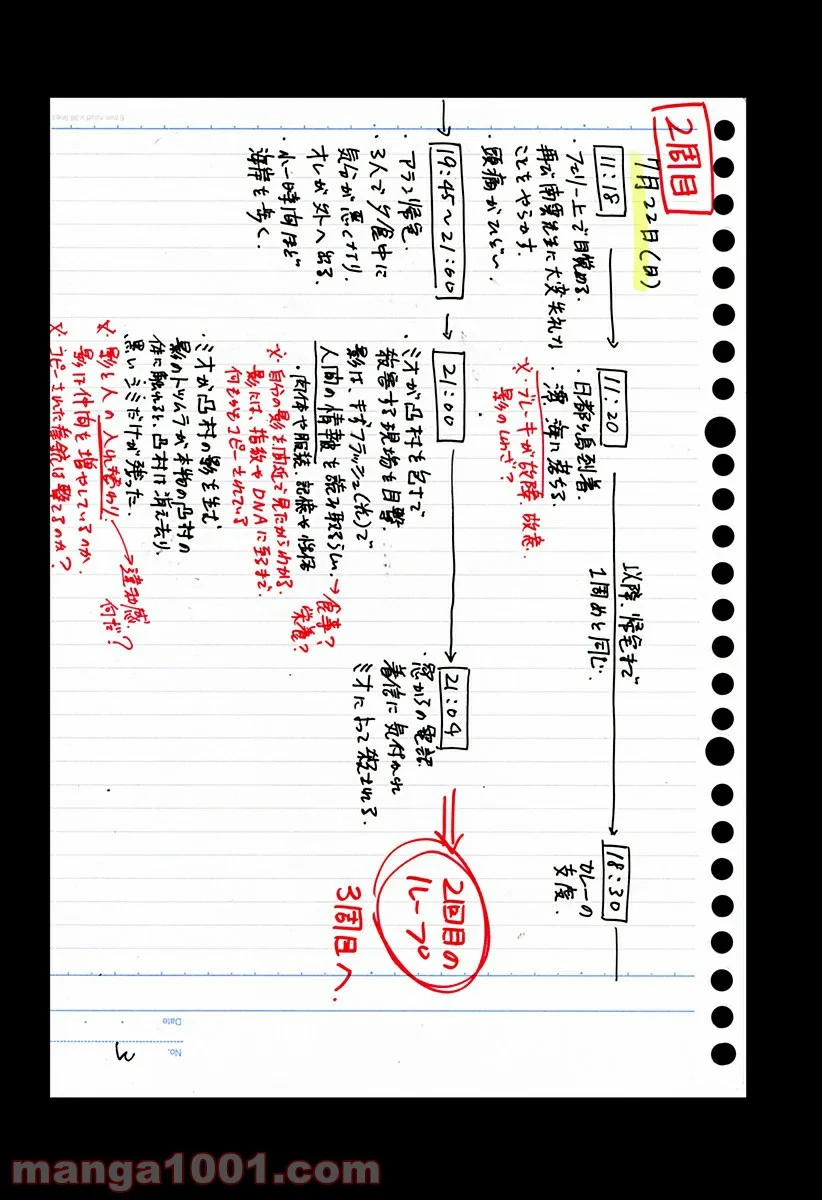 2周目
7月22日(日)
11:18
・フェリー上で目覚める。
再び南雲先生に大変失礼な
ことをやらかす。
頭痛がひどい。
11:20
・日都ヶ島到着。
・澪、海に落ちる。
※ブレーキが故障、故意。
影のしわざ?
以降、帰宅まで
1周めと同じ。
18:30
カレーの
支度。
19:45~21:00
・アラン帰宅。
・3人で夕食中に
気分が悪くなり、
オレが外へ出る。
・小一時間ほど
海岸を歩く。
21:00
・ミオが凸村を包丁で
殺害する現場を目撃。
影は、まずフラッシュ(光)で
人間の情報を読み取るらしい。→食事?
栄養?
・肉体や服装、記憶や性格
※自分の影を間近で見たからわかる。
影には、指紋やDNAに至るまで、
何もかもコピーされている
・ミオが凸村の影を生む
影のトツムラが本物の凸村の
体に触れると凸村は消え去り、
黒いシミだけが残った。
※影と人の入れ替わり。→違和感
何だ?
影は仲間を増やしているのか
※コピーされた着衣は
21:04
・窓からの電話。
着信に気付かれ
ミオによって殺される。
2回目の
ループ
3周目へ。
Date
No.
3
6 mm ruled x 36 lines
manga1001.com